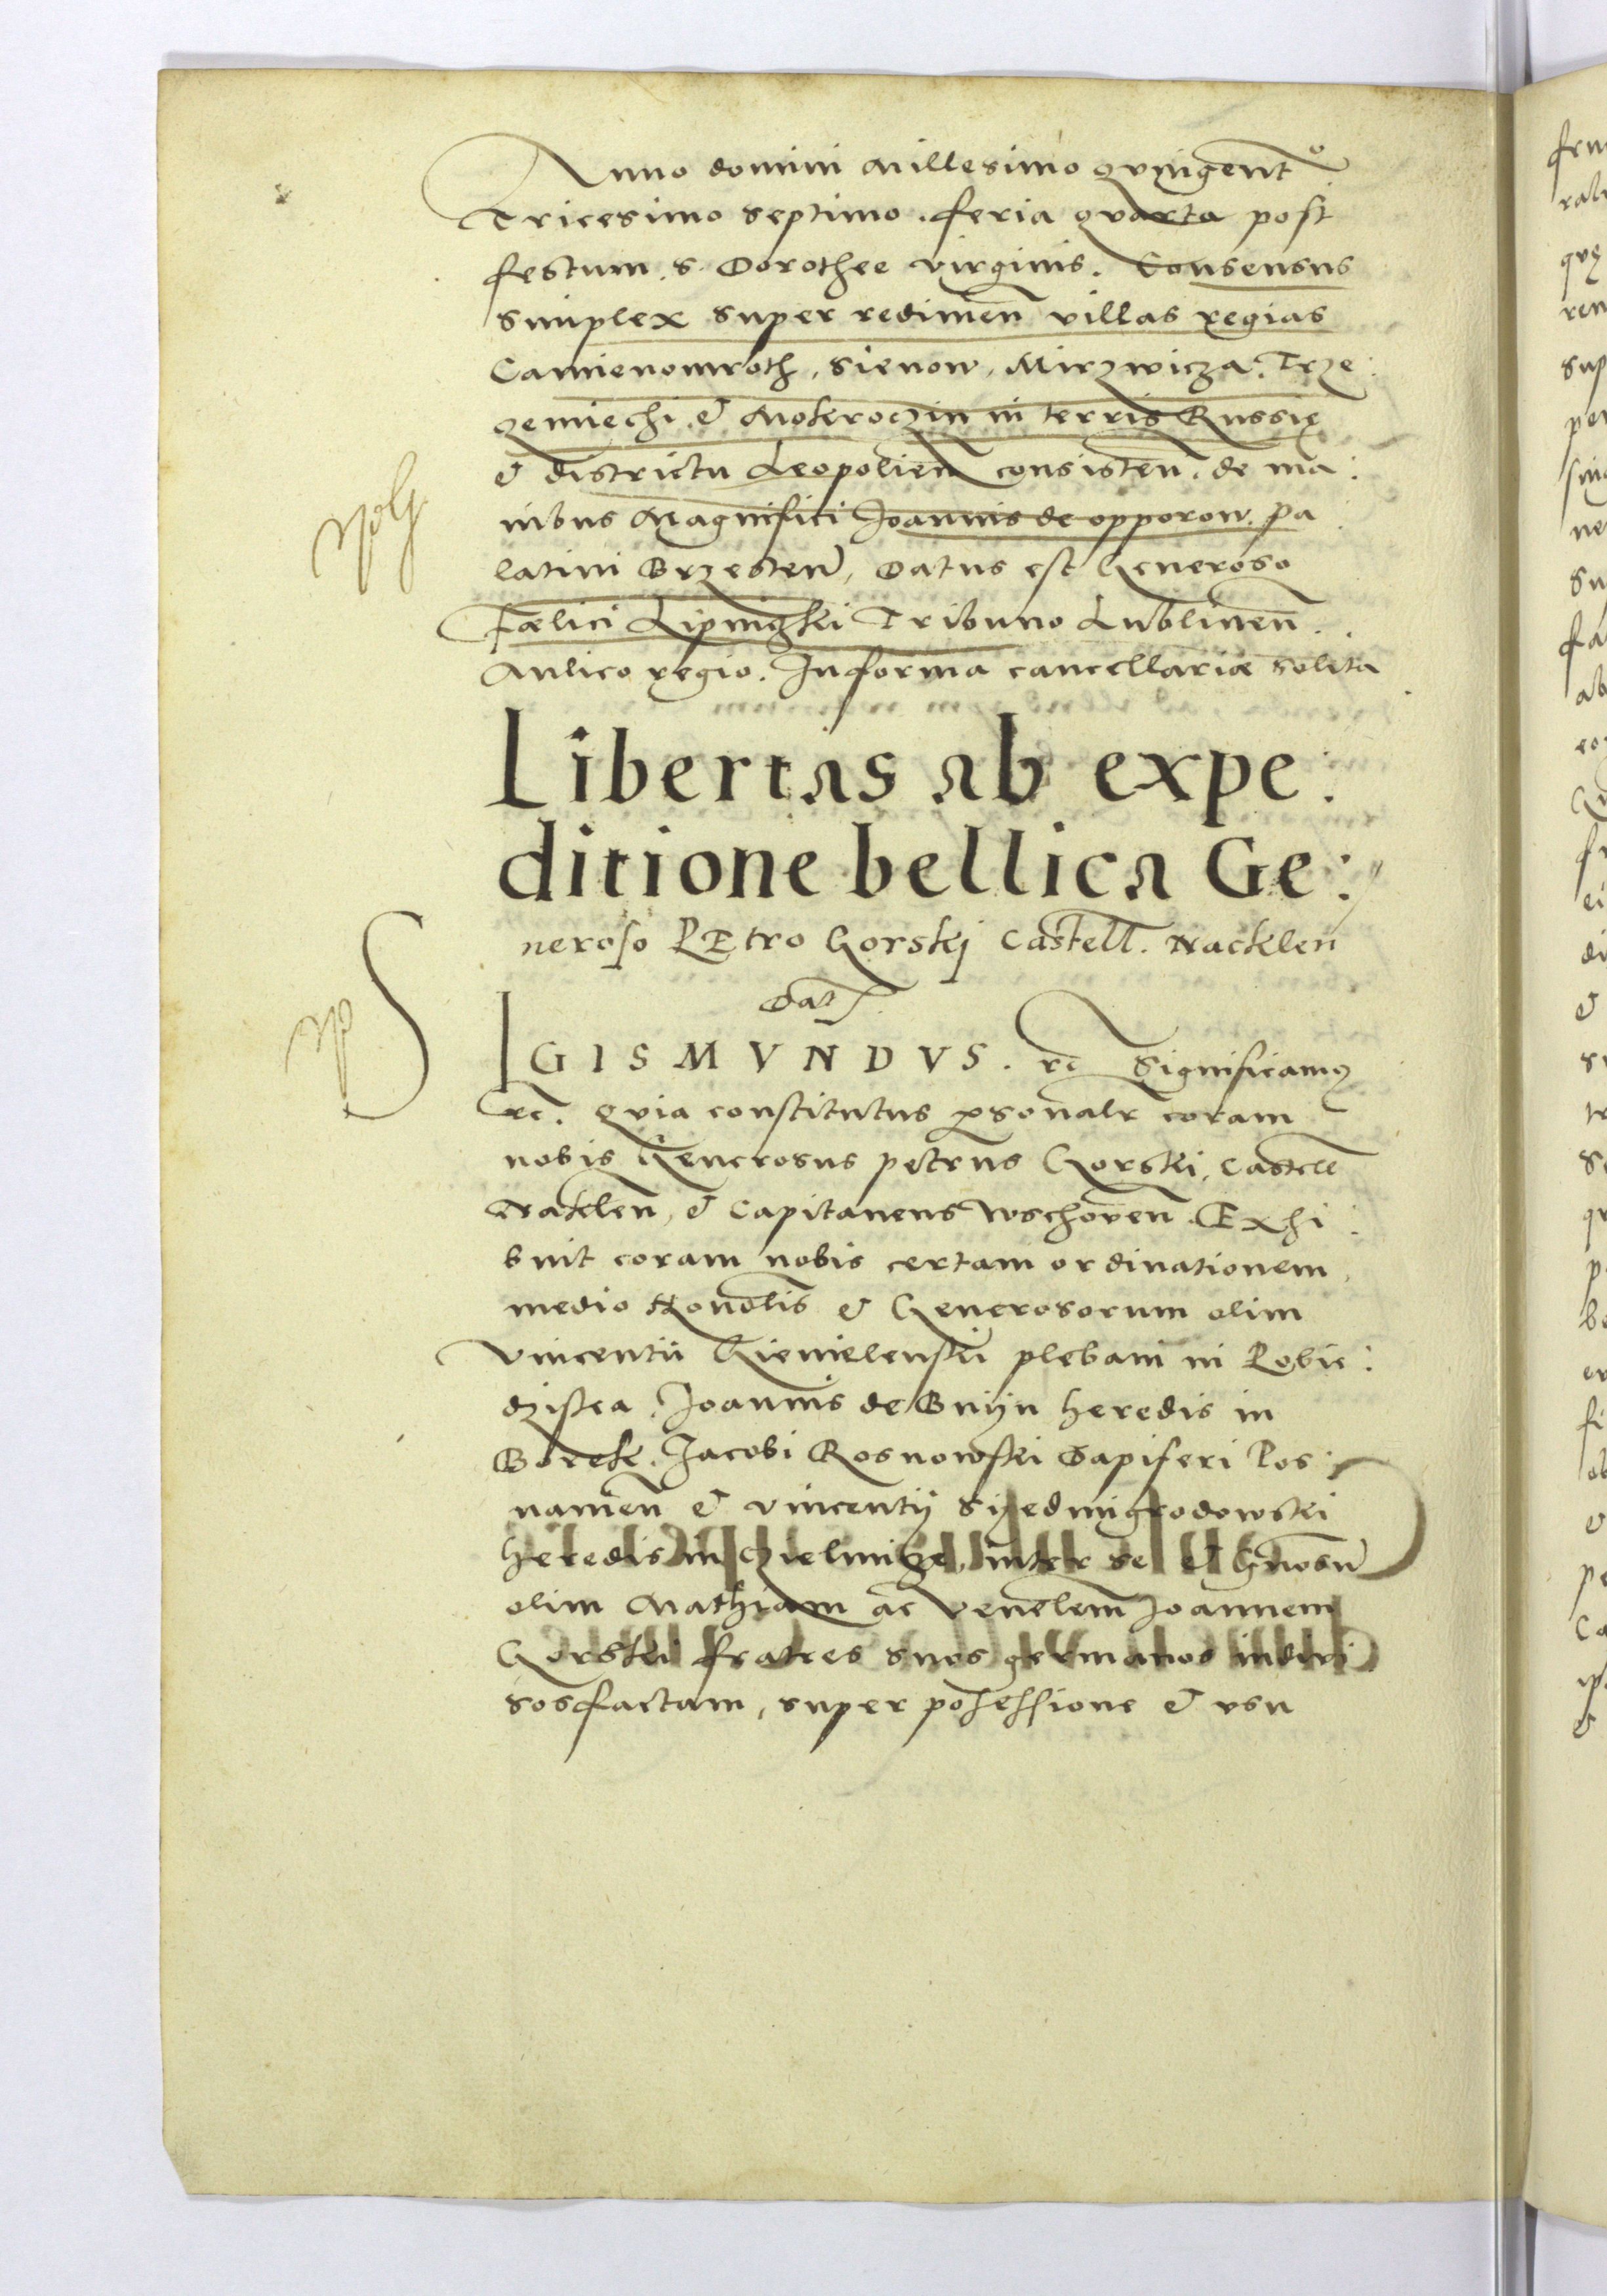 Anno domini Millesimo qvingent̃o
Tricesimo septimo. feria qvarta post
festum. s. Dorothee virginis. Consensus
simplex super redimeñ villas regias
Camienomroth, Sienow, Mirzwicza. Trze:
zeniechi. & Mokroczin in terris Russię
& districtu Leopolieñ consisteñ. de ma:
nibus Magnifici Joannis de opporow. pa
latini Brzesteñ, Datus est Generoso
Fælici Lipnigski Tribuno Lublineñ.
Aulico regio. In forma cancellariæ solita
Libertas ab expe:
ditione bellica Ge:
neroso PEtro Gorskj Castell. Nacklen
Dat
SIGISMVNDVS. rc̃ Significamq
rc̃. qvia constitutus p̱sonalr̃ coram
nobis Generosus petrus Gorski, Castell̃
Nakleñ, & Capitaneus Wschoveñ. Exhi:
buit coram nobis certam ordinationem,
medio Honol̃is & Generosorum olim
Vincentii Gienielenski plebani in Pobie:
dziska. Joannis de Bniyn heredis in
Borek. Jacobi Rosnowski Dapiferi Pos:
naniẽn & vincentij Siyedmigrodowski
heredis in Czielmize, inter se & Gnõsũ
olim Mathiam ac Veñelem̃ Joannem
Gorski fratres suos germanos indivi:
sos factam, super possessione & vsu